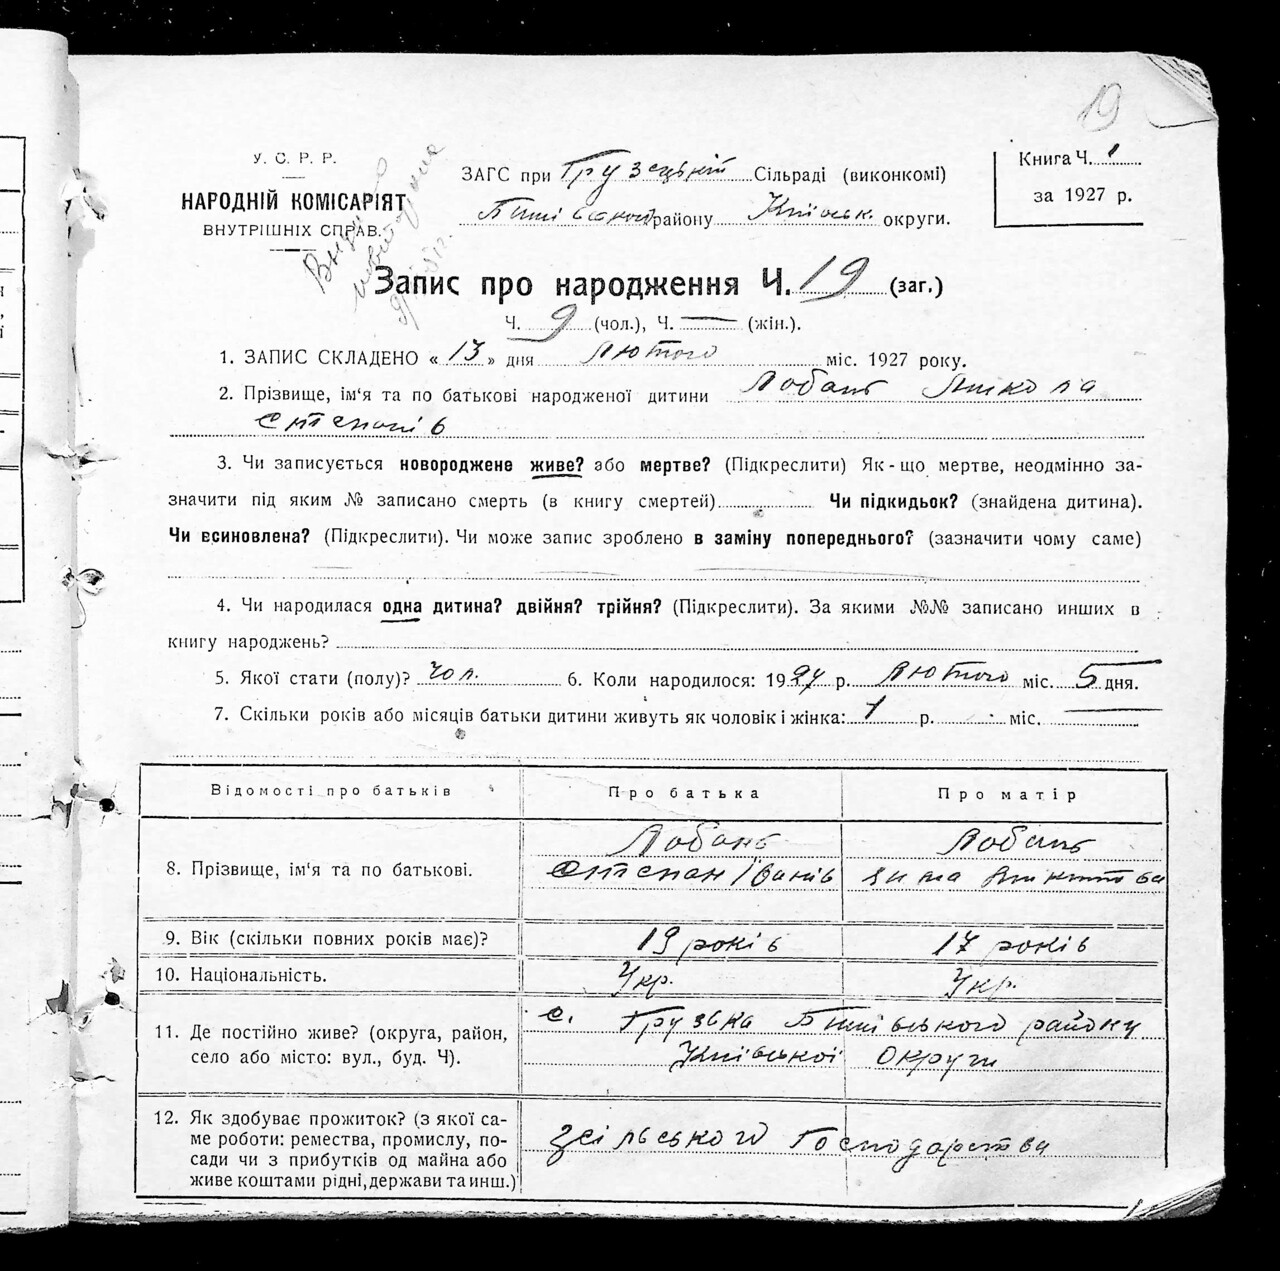 19
У. С. Р. Р.
НАРОДНІЙ КОМІСАРІЯТ
ВНУТРІШНІХ СПРАВ.
ЗАГС при Грузецькій Сільраді (виконкомі)
Бишівськой району Київськ. округи.
Книга Ч. 1
за 1927 р.
Запис про народження Ч. 19 (заг.)
Ч. 9 (чол.), Ч. — (жін.).
1. ЗАПИС СКЛАДЕНО « 13 » дня Лютого міс. 1927 року.
2. Прізвище, ім'я та по батькові народженої дитини Лобань Микола
Степанів
3. Чи записується новороджене живе? або мертве? (Підкреслити) Як-що мертве, неодмінно за-
значити під яким № записано смерть (в книгу смертей) Чи підкидьок? (знайдена дитина).
Чи всиновлена? (Підкреслити). Чи може запис зроблено в заміну попереднього? (зазначити чому саме)
4. Чи народилася одна дитина? двійня? трійня? (Підкреслити). За якими №№ записано инших в
книгу народжень?
5. Якої стати (полу)? Чол. 6. Коли народилося: 1927 р. Лютого міс. 5 дня.
7. Скільки років або місяців батьки дитини живуть як чоловік і жінка: 1 р. міс. —
Відомості про батьків Про батька Про матір
8. Прізвище, ім'я та по батькові. Лобань Лобань
Степан Іванів
9. Вік (скільки повних років має)? 19 років 17 років
10. Національність. Укр. Укр.
11. Де постійно живе? (округа, район,
село або місто: вул., буд. Ч).
с. Грузька Бишівського району
Київської Округи
12. Як здобуває прожиток? (з якої са-
ме роботи: ремества, промислу, по-
сади чи з прибутків од майна або
живе коштами рідні, держави та инш.)
Зсільського Господарства